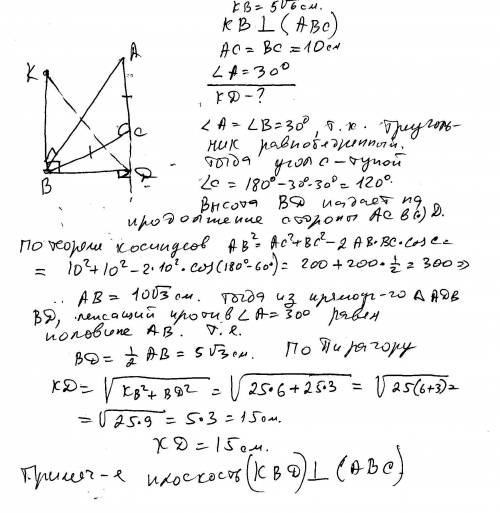 KB = 5√6 см.
KB ⊥ (ABC)
AC = BC = 10 см
∠A = 30°
KD - ?
A
K
C
B
D
∠A = ∠B = 30°, т.к. треуголь-
ник равнобедренный.
Тогда угол C - тупой
∠C = 180° - 30° - 30° = 120°.
Высота BD падает на
продолжение стороны AC в (·) D.
По теореме косинусов AB² = AC² + BC² - 2AB·BC·cos C =
= 10² + 10² - 2·10²·cos(180° - 60°) = 200 + 200·½ = 300 ⇒
∴ AB = 10√3 см. Тогда из прямоуг-го Δ ADB
BD, лежащий против ∠A = 30° равен
половине AB. т.е.
BD = ½ AB = 5√3 см. По Пифагору
KD = √KB² + BD² = √25·6 + 25·3 = √25(6+3) =
= √25·9 = 5·3 = 15 см.
KD = 15 см.
Примеч-е плоскость (KBD) ⊥ (ABC)